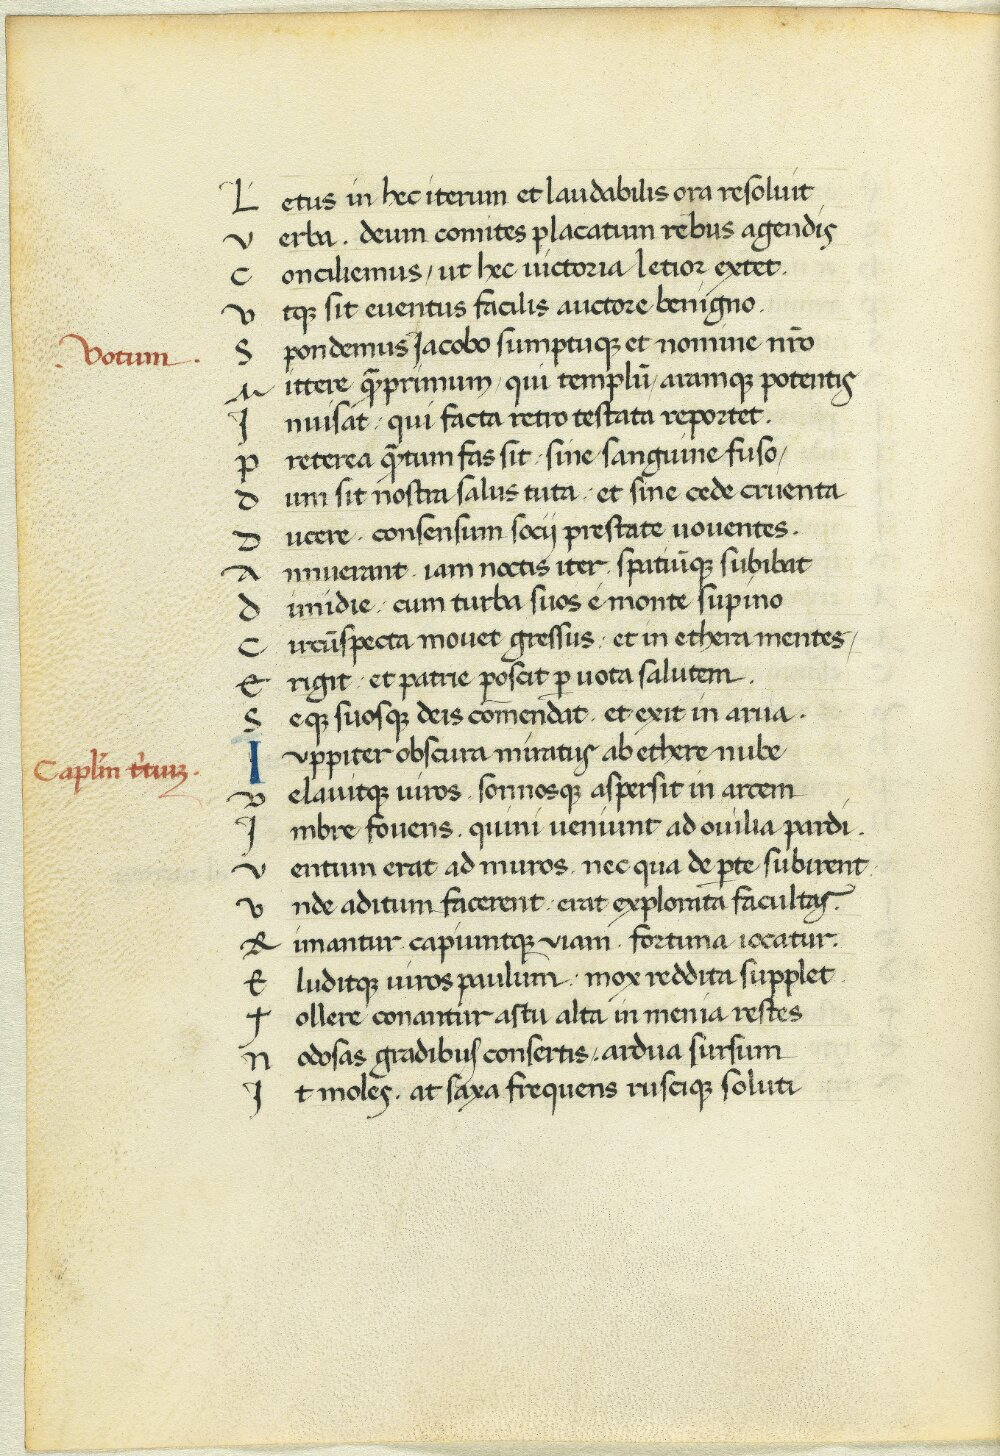 Letus in hec iterum et laudabilis ora resoluit
Verba. deum comites placatum rebus agendis
Conciliemus, ut hec uictoria letior extet.
Vtqȝ sit euentus facilis auctore benigno.
Votum.
Spondemus Jacobo sumptuqȝ et nomine nr̄o
Mittere q̄primum, qui templū, aramqȝ potentis
Inuisat. qui facta retro testata reportet.
Preterea q̄tum fas sit. sine sanguine fuso,
Dum sit nostra salus tuta. et sine cede cruenta
Ducere. consensum socij prestate uouentes.
Annuerant. iam noctis iter. spatiūqȝ subibat
Dimidie. cum turba suos e monte supino
Circūspecta mouet gressus. et in ethera mentes,
Erigit. et patrie poscit p uota salutem.
Seqȝ suosqȝ deis com̄endat. et exit in arua.
Caplm̄ t̄tiuȝ.
Iuppiter obscura miratus ab ethere nube
Velauitqȝ uiros. somnosqȝ aspersit in arcem
Imbre fouens. quini ueniunt ad ouilia pardi.
Ventum erat ad muros. nec qua de p̱te subirent.
Vnde aditum facerent. erat explorata facultas.
Rimantur capiuntqȝ uiam. fortuna iocatur.
Eluditqȝ uiros paulum. mox reddita supplet.
Tollere conantur astu alta in menia restes
Nodosas gradibus consertis. ardua sursum
It moles. at saxa frequens rusciqȝ soluti